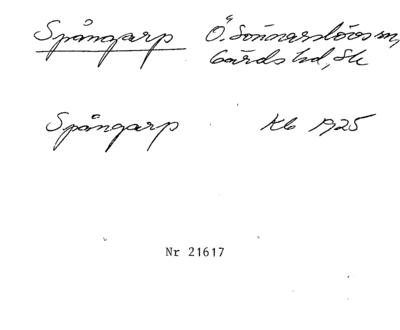 Spångarp Ö. Sönnarslövs sn,
Gärds hd, Sk
Spångarp Kb 1925
Nr 21617